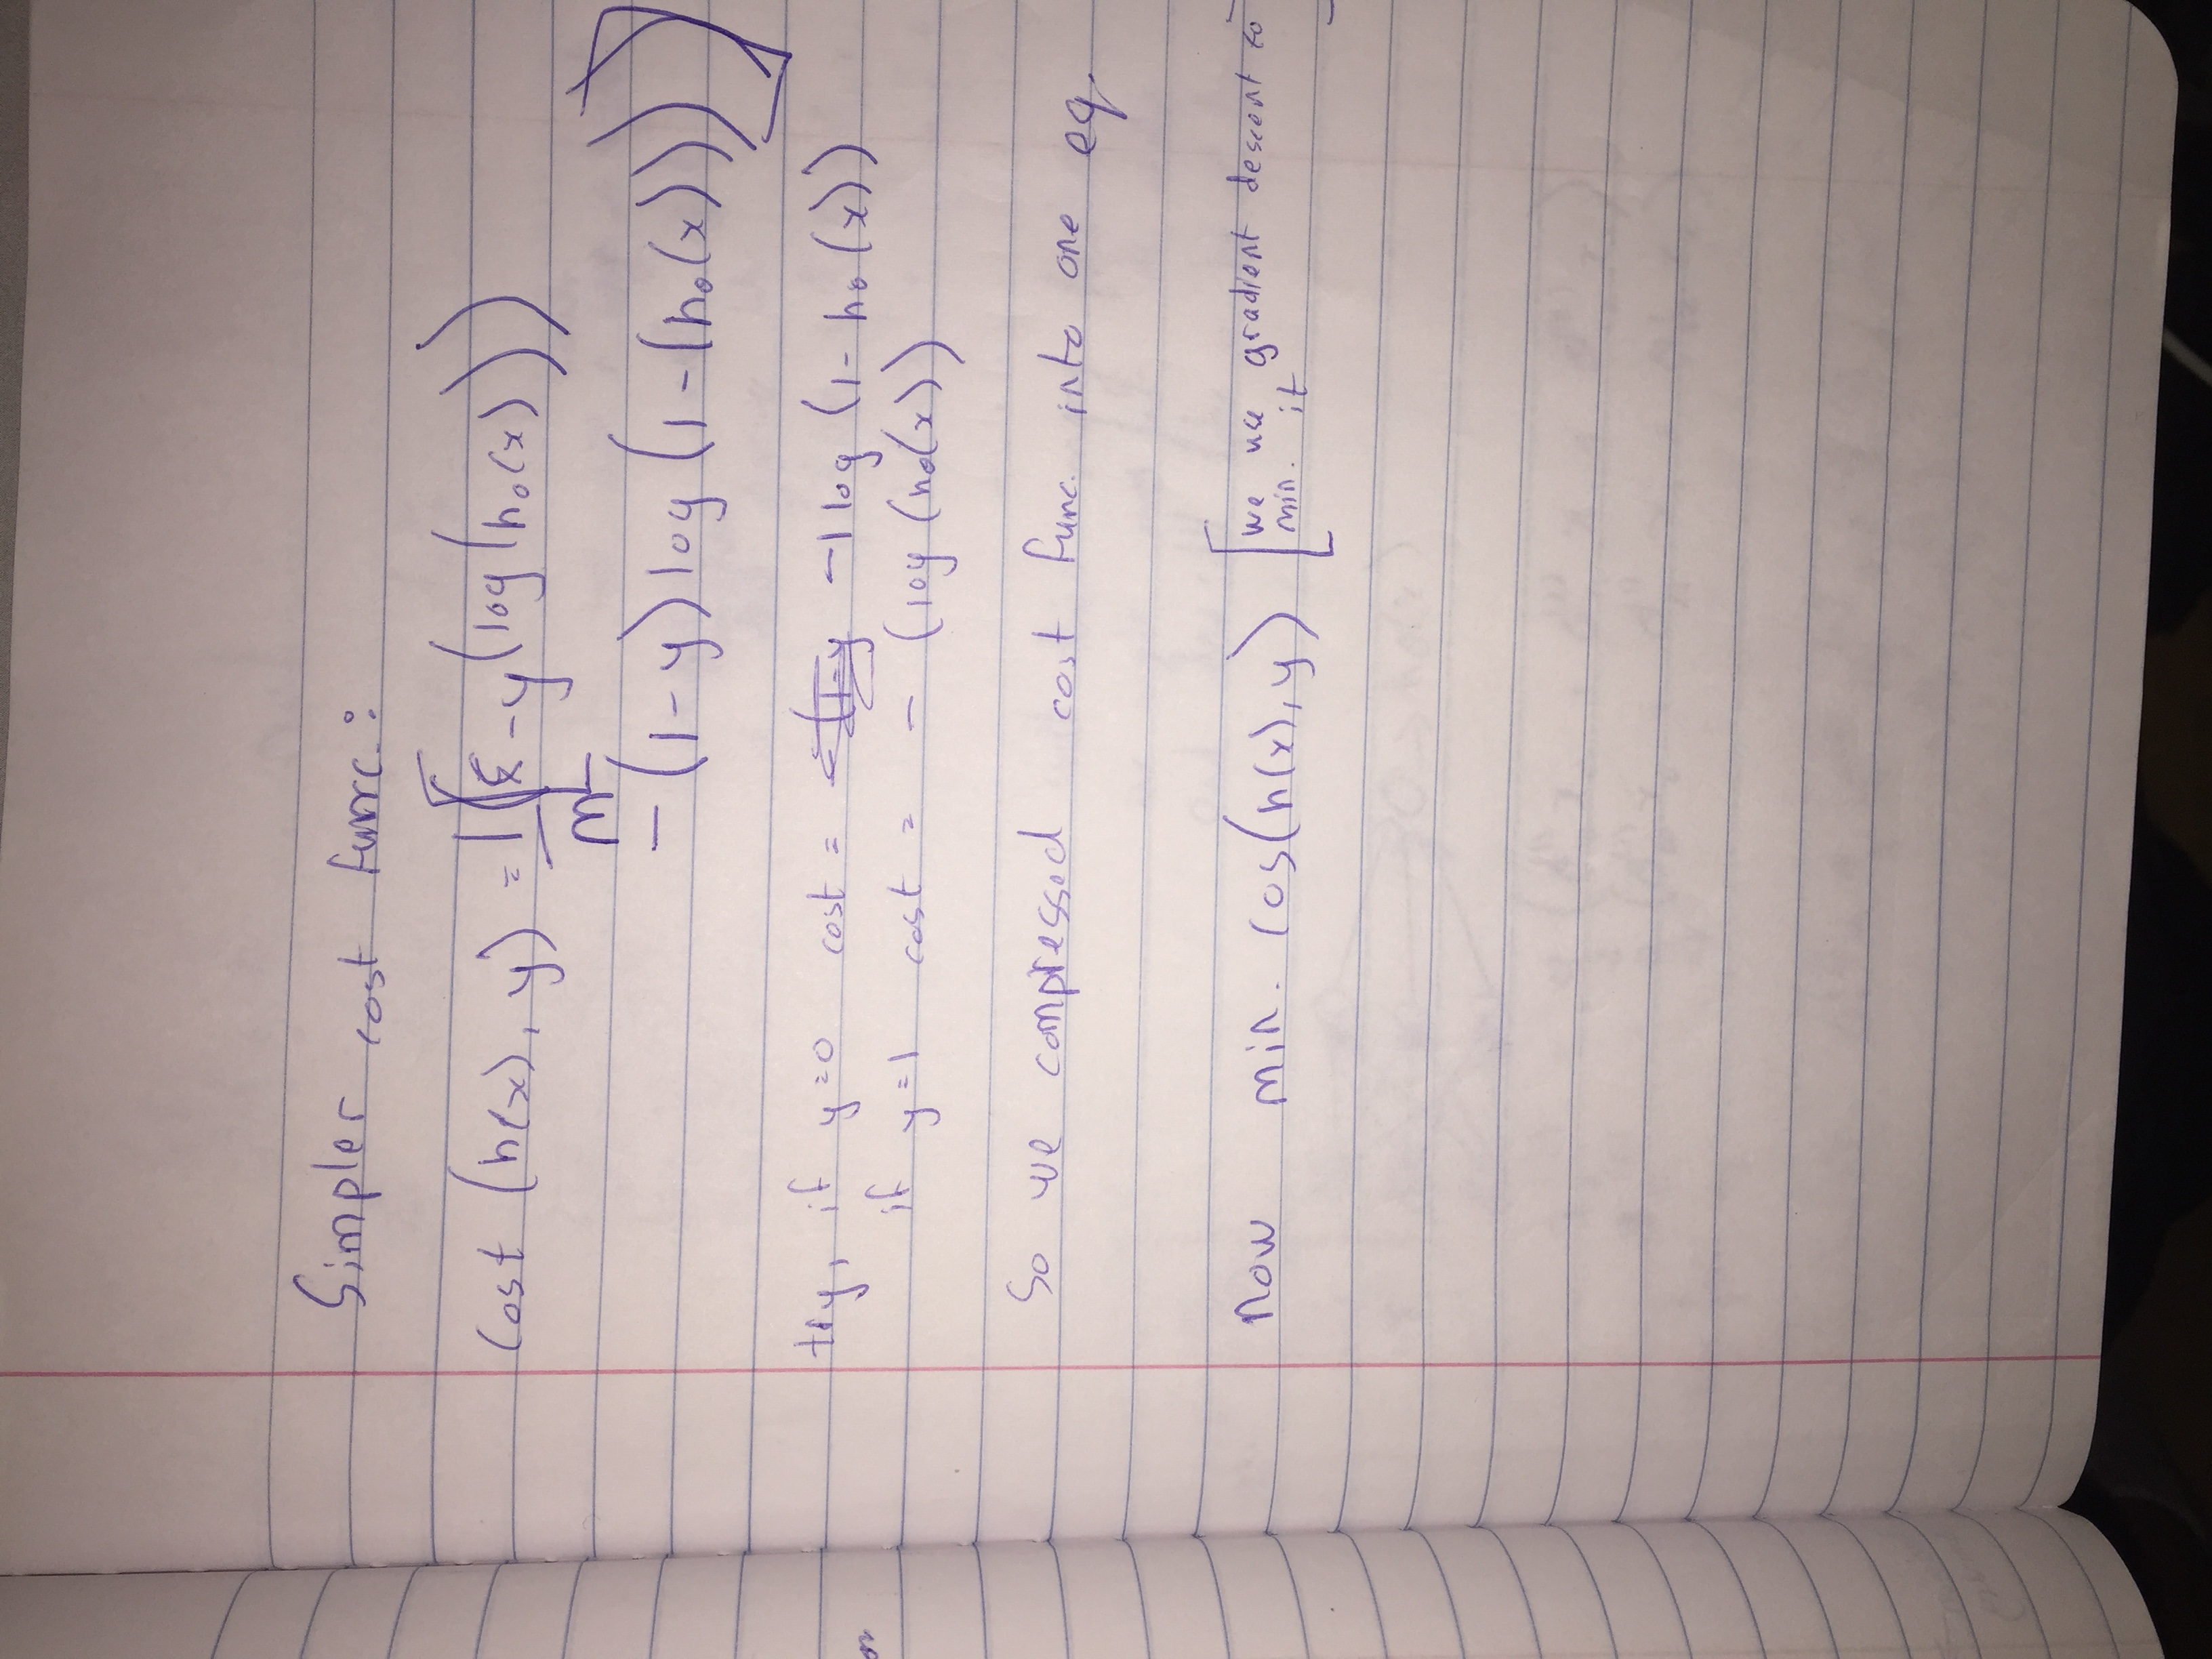 Simpler cost func.:
Cost (h(x), y) = 1/m [Σ -y(log(h₀(x)))
- (1-y) log (1-(h₀(x)))]
try, if y=0 cost = -1 log (1- h₀(x))
if y=1 cost = - (log (h₀(x))
So we compressed cost func. into one eq.
Now min. Cos(h(x), y) [we use gradient descent to
min. it]